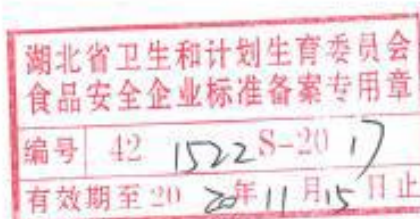 湖北省卫生和计划生育委员会
食品安全企业标准备案专用章
编号 42 1522 S-20 17
有效期至20 20年11月15日止